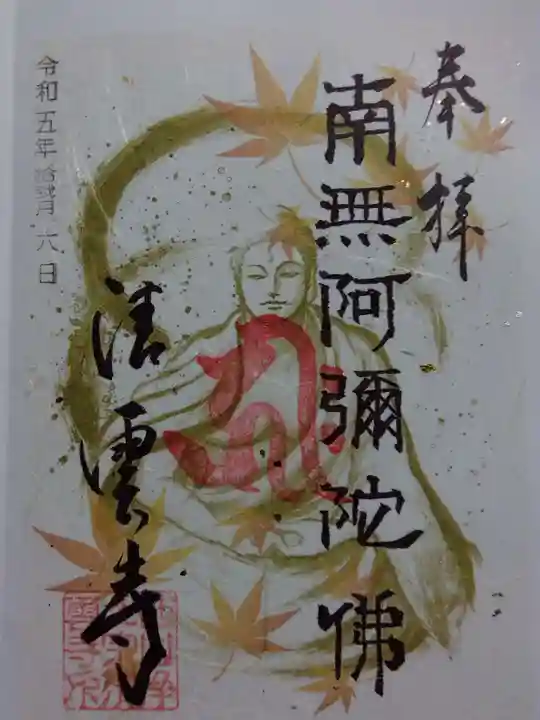 奉拝
南無阿彌陀佛
清雲寺
令和五年拾月六日